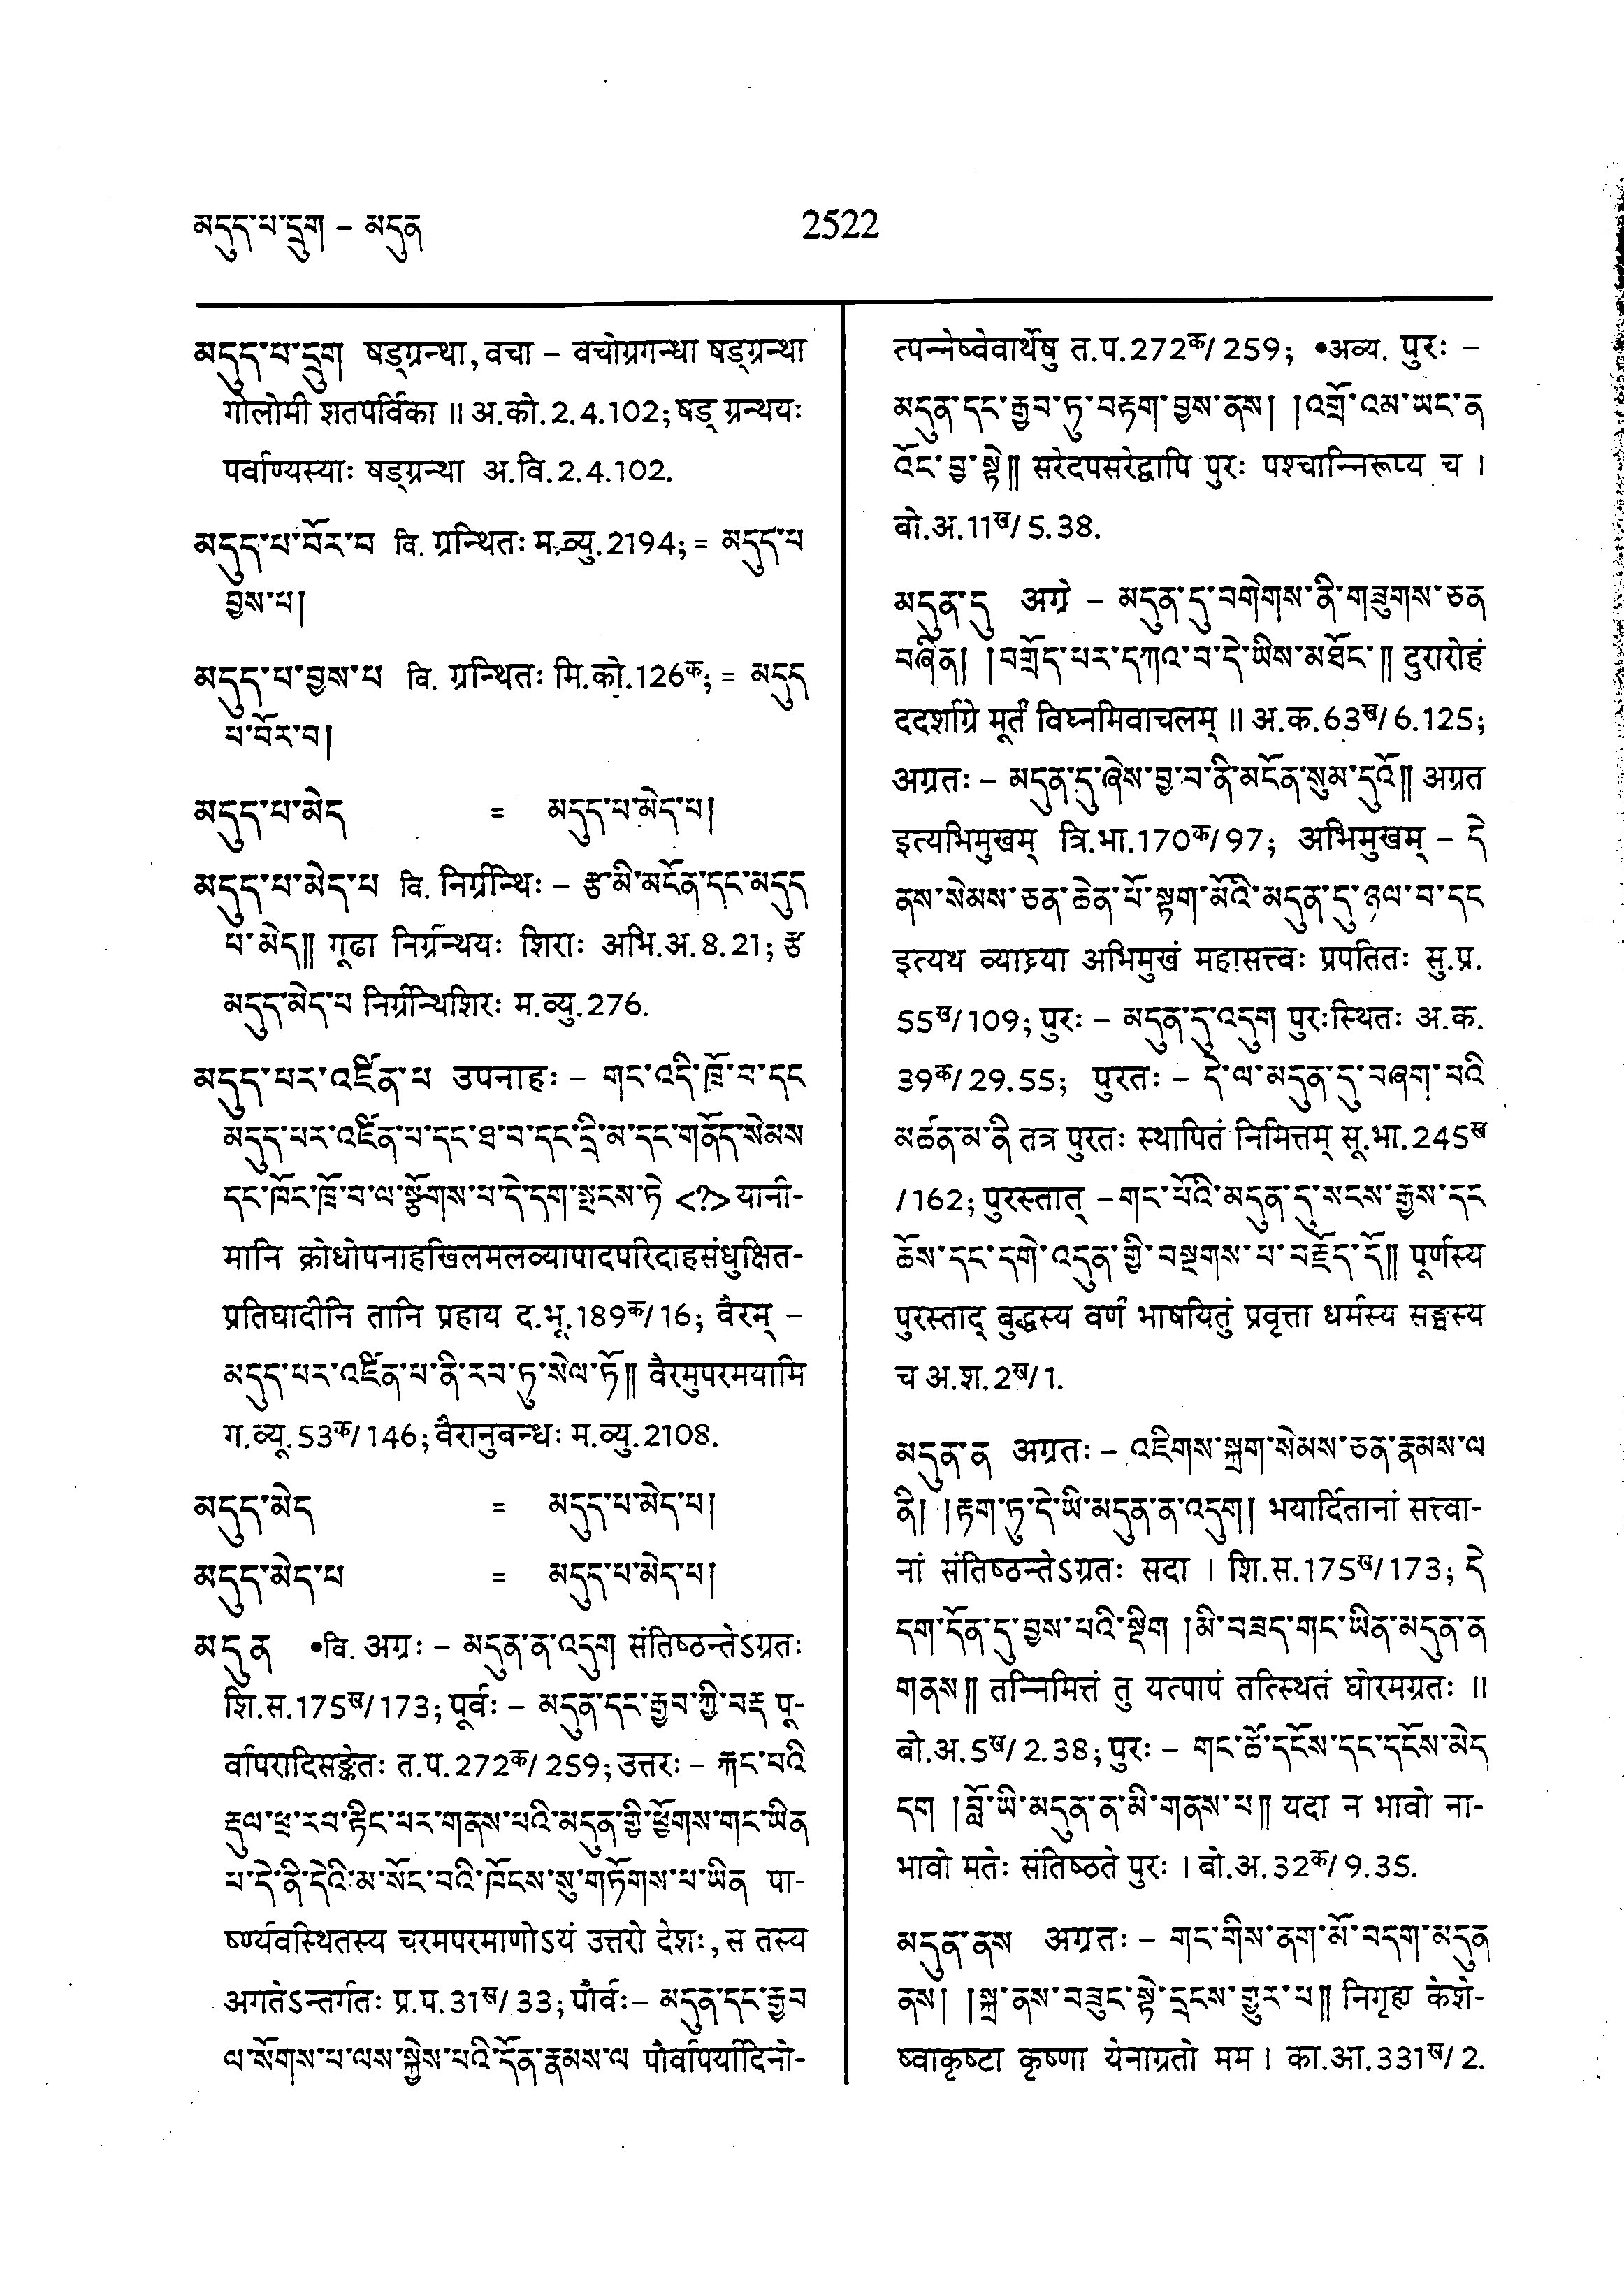 མདུད་པ་དྲུག – མདུན
2522
མདུད་པ་དྲུག षड्ग्रन्था, वचा – वचोग्रगन्धा षड्ग्रन्था
गोलोमी शतपर्विका ॥ अ.को.2.4.102; षड् ग्रन्थयः
पर्वाण्यस्याः षड्ग्रन्था अ.वि.2.4.102.
མདུད་པ་བོར་བ वि. ग्रन्थितः म.व्यु.2194; = མདུད་པ
བྱས་པ།
མདུད་པ་བྱས་པ वि. ग्रन्थितः मि.को.126क; = མདུད
པ་བོར་བ།
མདུད་པ་མེད = མདུད་པ་མེད་པ།
མདུད་པ་མེད་པ वि. निर्ग्रन्थिः – རྩ་མི་མངོན་དང་མདུད
པ་མེད༎ गूढा निर्ग्रन्थयः शिराः अभि.अ.8.21; རྩ
མདུད་མེད་པ निर्ग्रन्थिशिरः म.व्यु.276.
མདུད་པར་འཛིན་པ उपनाहः – གང་འདི་ཁྲོ་བ་དང
མདུད་པར་འཛིན་པ་དང་ཐ་བ་དང་དྲི་མ་དང་གནོད་སེམས
དང་ཁོང་ཁྲོ་བ་ལ་སྩོགས་པ་དེ་དག་སྤངས་ཏེ <?> यानी-
मानि क्रोधोपनाहखिलमलव्यापादपरिदाहसंधुक्षित-
प्रतिघादीनि तानि प्रहाय द.भू.189क/16; वैरम् –
མདུད་པར་འཛིན་པ་ནི་རབ་ཏུ་སེལ་ཏོ༎ वैरमुपरमयामि
ग.व्यू.53क/146; वैरानुबन्धः म.व्यु.2108.
མདུད་མེད = མདུད་པ་མེད་པ།
མདུད་མེད་པ = མདུད་པ་མེད་པ།
མདུན •वि. अग्रः – མདུན་ན་འདུག संतिष्ठन्तेऽग्रतः
शि.स.175ख/173; पूर्वः – མདུན་དང་རྒྱབ་ཀྱི་བརྡ पू-
र्वापरादिसङ्केतः त.प.272क/259; उत्तरः – རྐང་པའི
རྡུལ་ཕྲ་རབ་རྟིང་པར་གནས་པའི་མདུན་གྱི་ཕྱོགས་གང་ཡིན
པ་དེ་ནི་དེའི་མ་སོང་བའི་ཁོངས་སུ་གཏོགས་པ་ཡིན पा-
र्ष्ण्यवस्थितस्य चरमपरमाणोऽयं उत्तरो देशः, स तस्य
अगतेऽन्तर्गतः प्र.प.31ख/33; पौर्वः – མདུན་དང་རྒྱབ
ལ་སོགས་པ་ལས་སྐྱེས་པའི་དོན་རྣམས་ལ पौर्वापर्यादिनो-
त्पन्नेष्वेवार्थेषु त.प.272क/259; •अव्य. पुरः –
མདུན་དང་རྒྱབ་ཏུ་བརྟག་བྱས་ནས། །འགྲོ་འམ་ཡང་ན
འོང་བྱ་སྟེ༎ सरेदपसरेद्वापि पुरः पश्चान्निरूप्य च ।
बो.अ.11ख/5.38.
མདུན་དུ अग्रे – མདུན་དུ་བགེགས་ནི་གཟུགས་ཅན
བཞིན། །བགྲོད་པར་དཀའ་བ་དེ་ཡིས་མཐོང་༎ दुरारोहं
ददर्शाग्रे मूर्तं विघ्नमिवाचलम् ॥ अ.क.63ख/6.125;
अग्रतः – མདུན་དུ་ཞེས་བྱ་བ་ནི་མངོན་སུམ་དུའོ༎ अग्रत
इत्यभिमुखम् त्रि.भा.170क/97; अभिमुखम् – དེ
ནས་སེམས་ཅན་ཆེན་པོ་སྟག་མོའི་མདུན་དུ་ཉལ་བ་དང
इत्यथ व्याघ्र्या अभिमुखं महासत्त्वः प्रपतितः सु.प्र.
55ख/109; पुरः – མདུན་དུ་འདུག पुरःस्थितः अ.क.
39क/29.55; पुरतः – དེ་ལ་མདུན་དུ་བཞག་པའི
མཚན་མ་ནི तत्र पुरतः स्थापितं निमित्तम् सू.भा.245ख
/162; पुरस्तात् – གང་པོའི་མདུན་དུ་སངས་རྒྱས་དང
ཆོས་དང་དགེ་འདུན་གྱི་བསྔགས་པ་བརྗོད་དོ༎ पूर्णस्य
पुरस्ताद् बुद्धस्य वर्णं भाषयितुं प्रवृत्ता धर्मस्य सङ्घस्य
च अ.श.2ख/1.
མདུན་ན अग्रतः – འཇིགས་སྐྲག་སེམས་ཅན་རྣམས་ལ
ནི། །རྟག་ཏུ་དེ་ཡི་མདུན་ན་འདུག། भयार्दितानां सत्त्वा-
नां संतिष्ठन्तेऽग्रतः सदा । शि.स.175ख/173; དེ
དག་དོན་དུ་བྱས་པའི་སྡིག །མི་བཟད་གང་ཡིན་མདུན་ན
གནས༎ तन्निमित्तं तु यत्पापं तत्स्थितं घोरमग्रतः ॥
बो.अ.5ख/2.38; पुरः – གང་ཚེ་དངོས་དང་དངོས་མེད
དག །བློ་ཡི་མདུན་ན་མི་གནས་པ༎ यदा न भावो ना-
भावो मतेः संतिष्ठते पुरः । बो.अ.32क/9.35.
མདུན་ནས अग्रतः – གང་གིས་ནག་མོ་བདག་མདུན
ནས། །སྐྲ་ནས་བཟུང་སྟེ་དྲངས་གྱུར་པ༎ निगृह्य केशे-
ष्वाकृष्टा कृष्णा येनाग्रतो मम । का.आ.331ख/2.